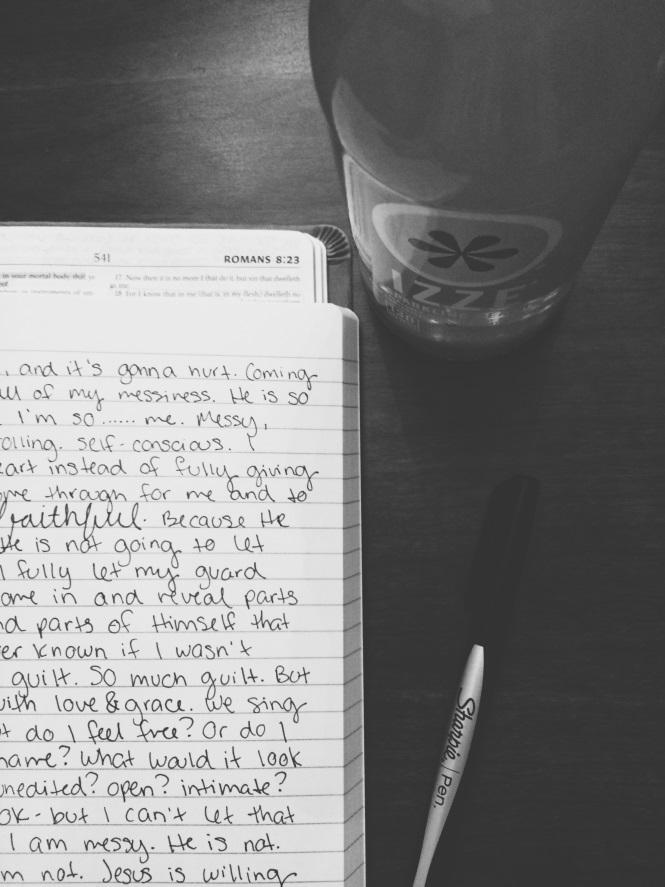 541 ROMANS 8:23
in your mortal body that
17 Now then it is no more I that do it, but sin that dwelleth
18 For I know that in me (that is, in my flesh) dwelleth no
IZZE
, and it's gonna hurt. Coming
of my messiness. He is so
I'm so...... me. Messy,
olling. self-conscious. I
eart instead of fully giving
me through for me and to
faithful. Because He
He is not going to let
I fully let my guard
ome in and reveal parts
nd parts of Himself that
er known if I wasn't
guilt. So much guilt. But
with love & grace. We sing
t do I feel free? Or do I
hame? What would it look
unedited? open? intimate?
ok - but I can't let that
I am messy. He is not.
m not. Jesus is willing
Sharpie | Pen.